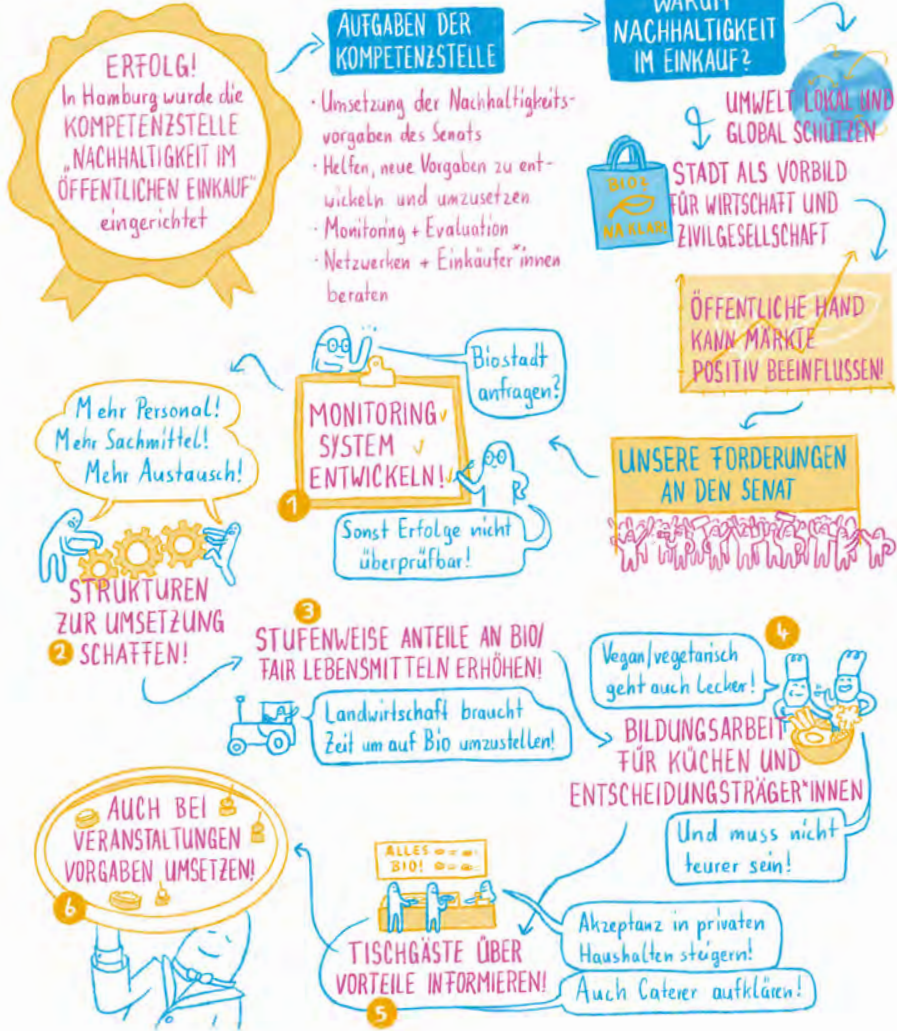 ERFOLG!
In Hamburg wurde die
KOMPETENZSTELLE
„NACHHALTIGKEIT IM
ÖFFENTLICHEN EINKAUF"
eingerichtet
AUFGABEN DER
KOMPETENZSTELLE
· Umsetzung der Nachhaltigkeits-
vorgaben des Senats
· Helfen, neue Vorgaben zu ent-
wickeln und umzusetzen
· Monitoring + Evaluation
· Netzwerken + Einkäufer*innen
beraten
WARUM
NACHHALTIGKEIT
IM EINKAUF?
UMWELT LOKAL UND
GLOBAL SCHÜTZEN
BIO?
NA KLAR!
STADT ALS VORBILD
FÜR WIRTSCHAFT UND
ZIVILGESELLSCHAFT
ÖFFENTLICHE HAND
KANN MÄRKTE
POSITIV BEEINFLUSSEN!
UNSERE FORDERUNGEN
AN DEN SENAT
Biostadt
anfragen?
MONITORING
SYSTEM
ENTWICKELN!
1
Sonst Erfolge nicht
überprüfbar!
Mehr Personal!
Mehr Sachmittel!
Mehr Austausch!
STRUKTUREN
ZUR UMSETZUNG
2 SCHAFFEN!
3
STUFENWEISE ANTEILE AN BIO/
FAIR LEBENSMITTELN ERHÖHEN!
Landwirtschaft braucht
Zeit um auf Bio umzustellen!
4
Vegan/vegetarisch
geht auch lecker!
BILDUNGSARBEIT
FÜR KÜCHEN UND
ENTSCHEIDUNGSTRÄGER*INNEN
Und muss nicht
teurer sein!
ALLES
BIO!
TISCHGÄSTE ÜBER
VORTEILE INFORMIEREN!
5
Akzeptanz in privaten
Haushalten steigern!
Auch Caterer aufklären!
AUCH BEI
VERANSTALTUNGEN
VORGABEN UMSETZEN!
6